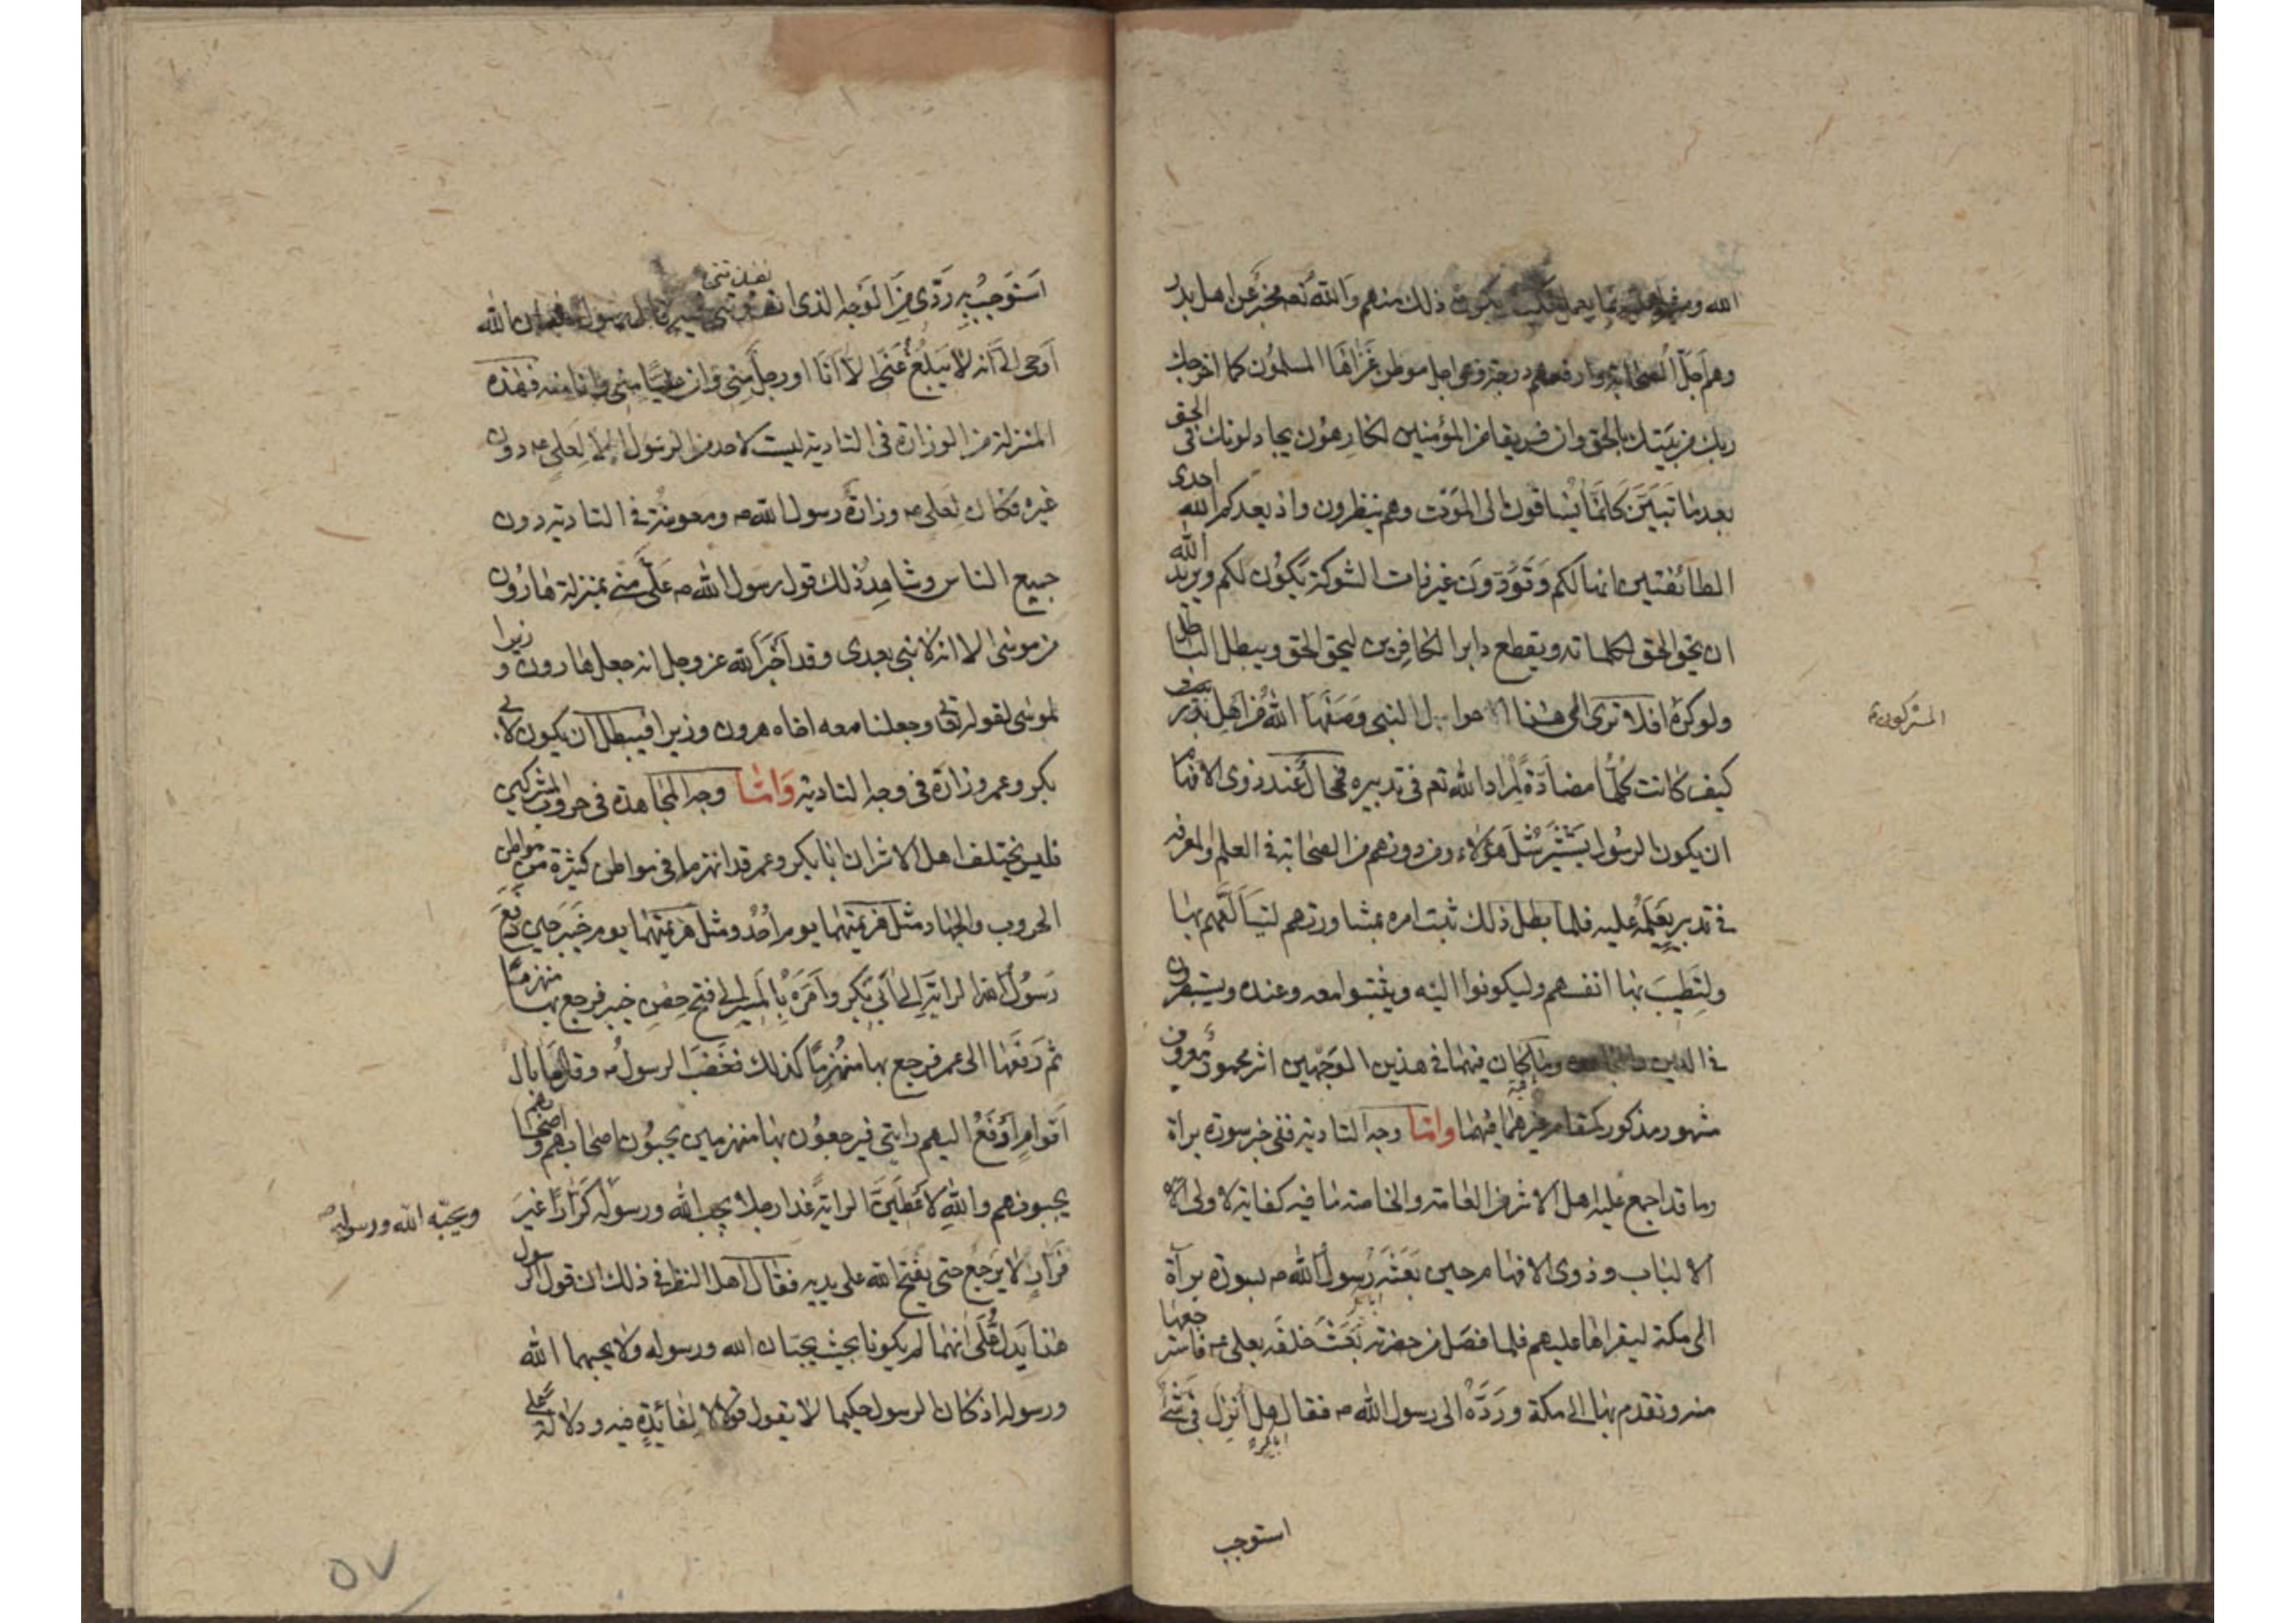 الله و بما يعمل يكون ذلك منهم والله تعم مخبر عن اهل بدر
وهم اجل الصحابة وارفعهم درجة وفى اجل موطن غزاها المسلمون كما اخرجك
ربك من بيتك بالحق وان فريقا من المؤمنين لكارهون يجادلونك فى الحق
بعد ما تبين كانما يساقون الى الموت وهم ينظرون واذ يعدكم الله احدى
الطائفتين انها لكم وتودون غير ذات الشوكة تكون لكم ويريد الله
ان يحق الحق بكلماته ويقطع دابر الكافرين ليحق الحق ويبطل الباطل
ولو كره افلا ترى الى هذا الاحوال النبى وصفها الله من اهل بدر
المشركون
كيف كانت كلها مضادة لمراد الله تعم فى تدبيره فمحال عند ذوى الافهام
ان يكون الرسول يستشير مثل هؤلاء ومن دونهم من الصحابة فى العلم والمعرفة
فى تدبير يعلمه عليه فلما بطل ذلك ثبت امره بمشاورتهم ليتالفهم بها
ولتطيب بها انفسهم وليكونوا اليه ويثبتوا معه وعنده ويستبصرون
فى الدين وما كان فيهما فى هذين الوجهين اثر محمود معروف
مشهور مذكور كمقام غيرهما فيهما واما وجه التادية ففى خبر سورة براة
وما قد اجمع عليه اهل الاثر من العامة والخاصة ما فيه كفاية لاولى
الالباب وذوى الافهام حين بعثه رسول الله ص بسورة برآة
الى مكة ليقراها عليهم فلما فصل من حضرته بعث خلفه بعلى ع فاسترجعها
منه وتقدم بها الى مكة ورده الى رسول الله ص فقال هل انزل فى شئ
ابابكر
استوجب
استوجب به ردى من الوجه الذى انفذتنى فيه قال رسول ان الله
اوحى الى انه لا يبلغ عنى الا انا او رجل منى وان عليا منى وانا منه فهذه
المنزلة من الوزارة فى التادية ليست لاحد من الرسول الا لعلى ع دون
غيره فكان لعلى ع وزارة رسول الله ص ومعونته فى التادية دون
جميع الناس وشاهد ذلك قول رسول الله ص على منى بمنزلة هارون
من موسى الا انه لا نبى بعدى وقد اخبر الله عز وجل انه جعل هارون وزيرا
لموسى لقوله تعالى وجعلنا معه اخاه هرون وزيرا فيبطل ان يكون لابى
بكر وعمر وزارة فى وجه التادية واما وجه المجاهدة فى حروب المشركين
فليس يختلف اهل الاثر ان ابا بكر وعمر قد انهزما فى مواطن كثيرة من مواطن
الحروب والجهاد مثل هزيمتهما يوم احد ومثل هزيمتهما يوم خيبر حين دفع
رسول الله الراية الى ابى بكر وامره بالمسير الى فتح حصن خيبر فرجع بها منهزما
ثم دفعها الى عمر فرجع بها منهزما كذلك فغضب الرسول ص وقال ما بال
اقوام ادفع اليهم رايتى فيرجعون بها منهزمين يجبنون اصحابهم واصحابهم
يجبنونهم والله لاعطين الراية غدا رجلا يحب الله ورسوله كرارا غير
ويحبه الله ورسوله
فرار لا يرجع حتى يفتح الله على يديه فقال اهل النظر فى ذلك ان قول الرسول
هذا يدل على انهما لم يكونا بحيث يحبان الله ورسوله ولا يحبهما الله
ورسوله اذ كان الرسول حكيما لا يقول قولا الا لفائدة فيه ودلالة على
٥٧